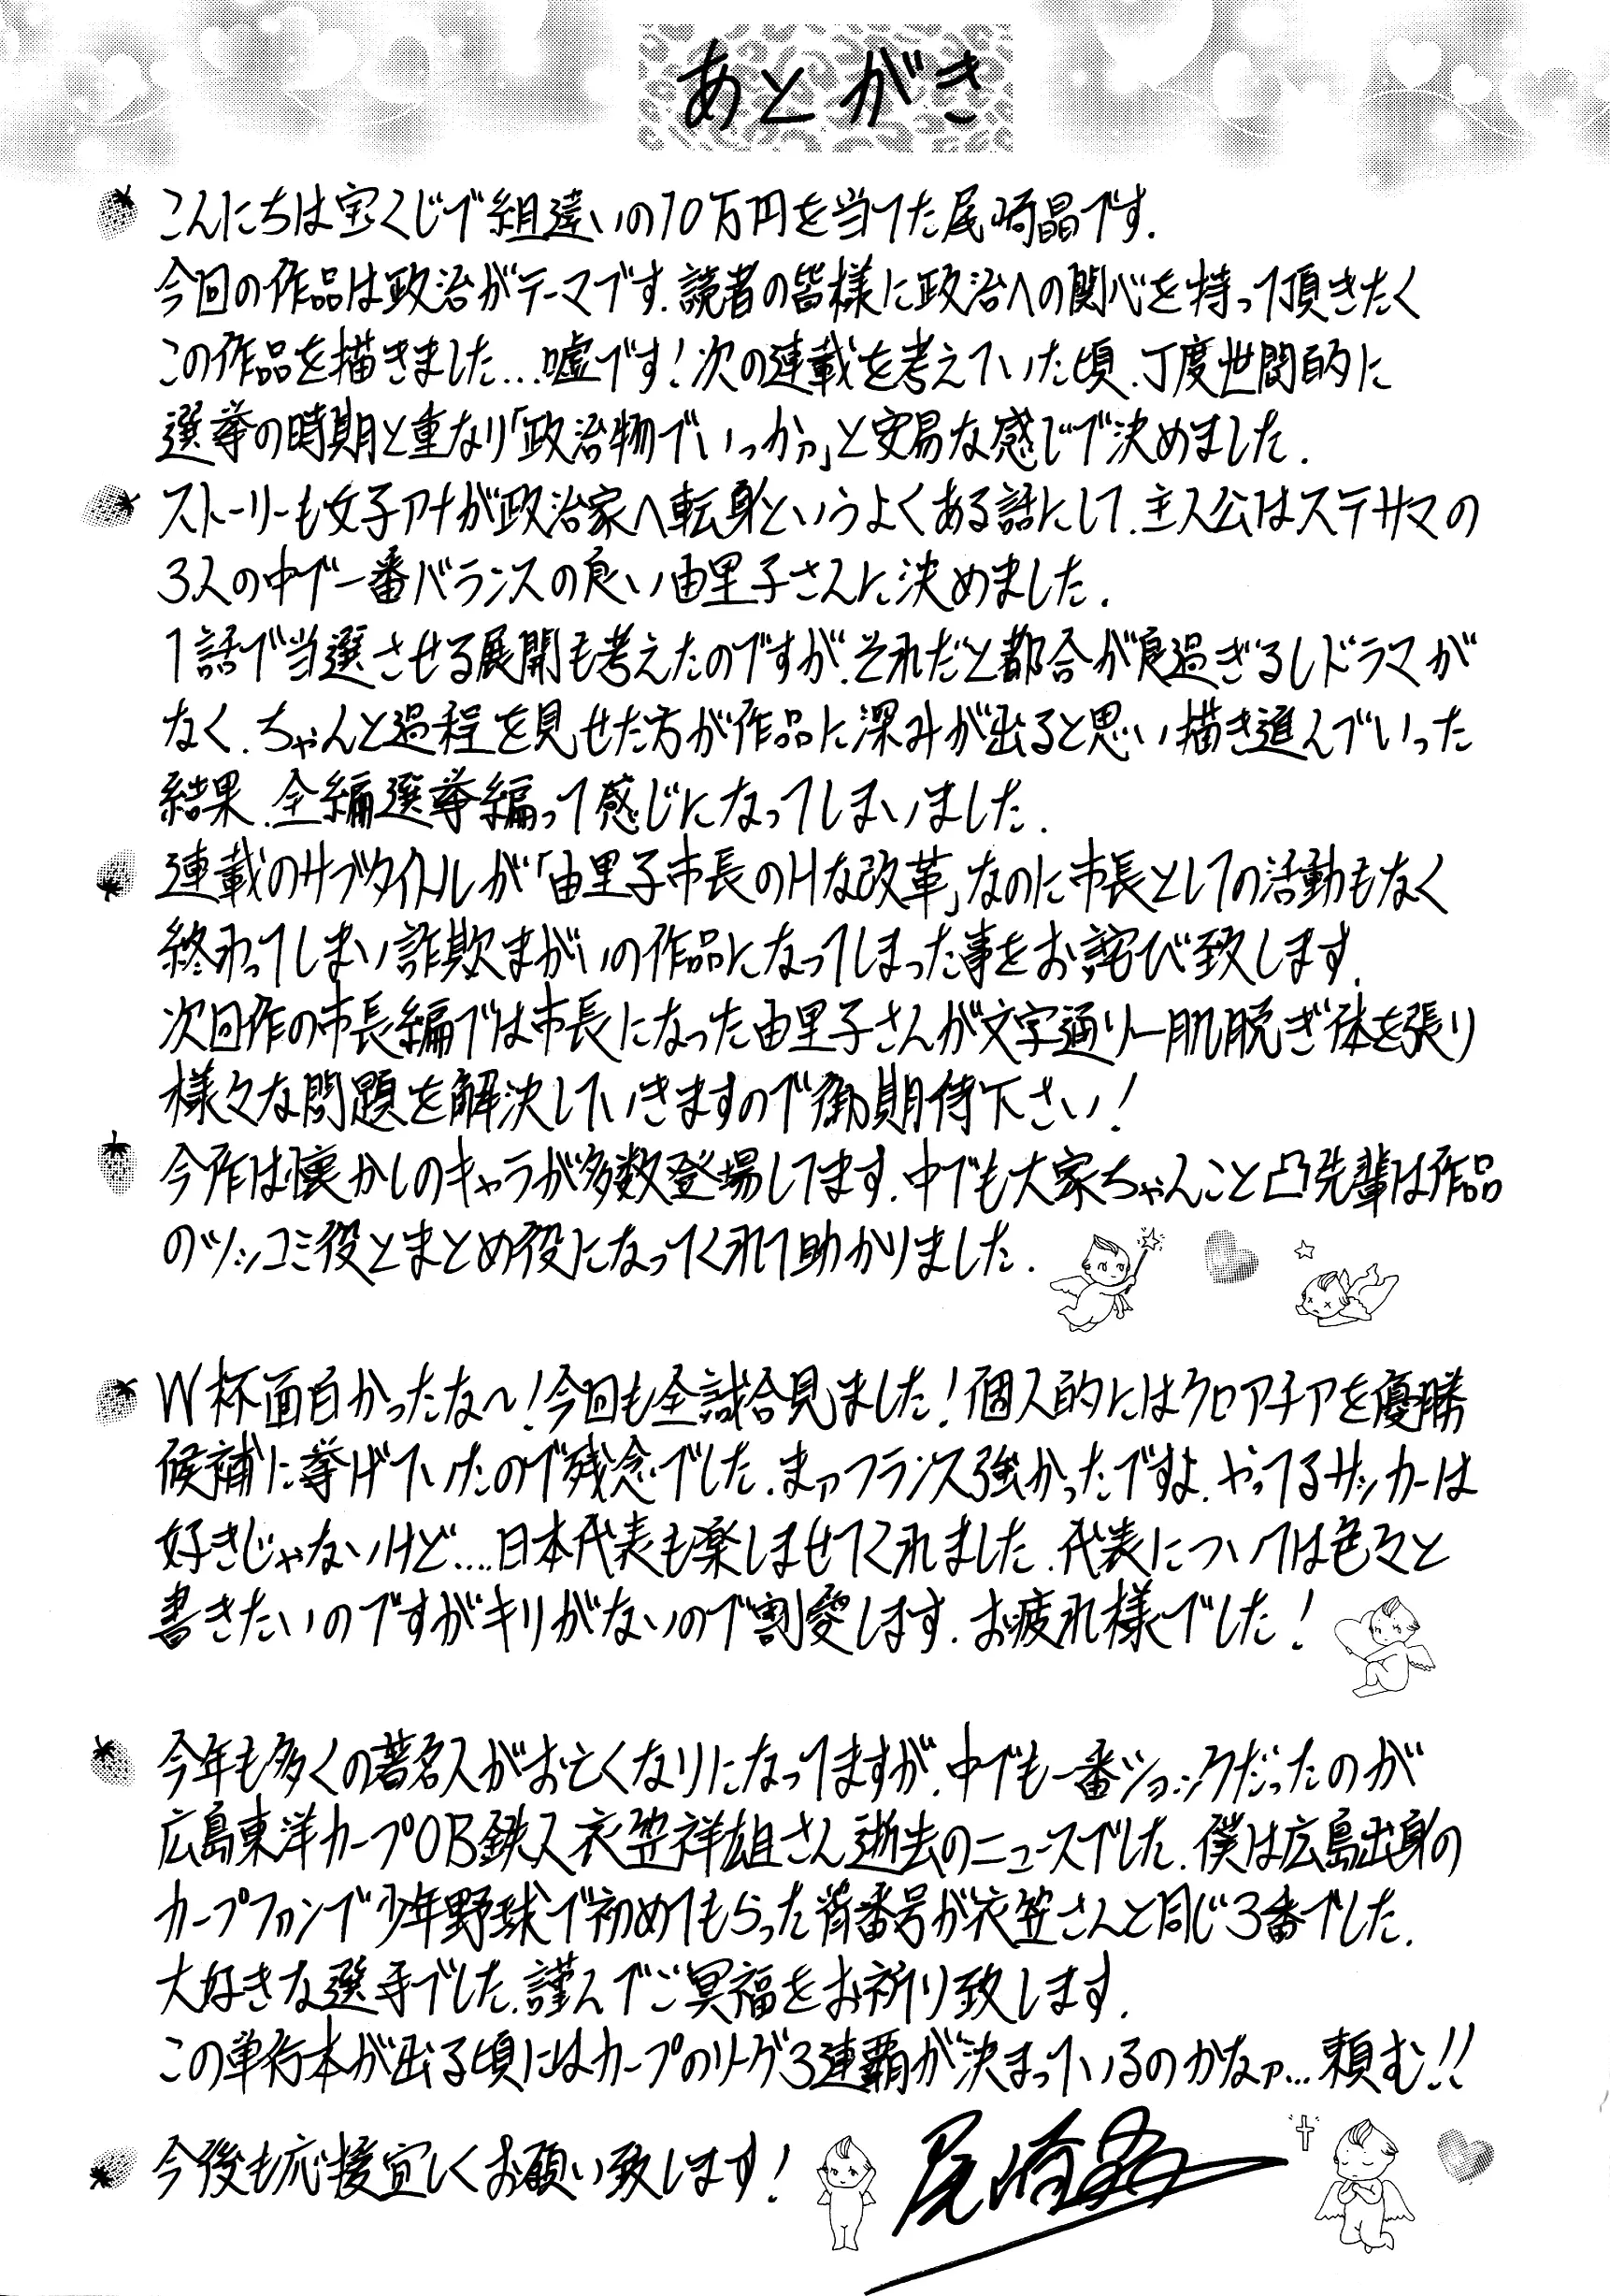 あとがき
こんにちは宝くじで組違いの10万円を当てた尾崎晶です.
今回の作品は政治がテーマです.読者の皆様に政治への関心を持って頂きたく
この作品を描きました...嘘です!次の連載を考えていた頃、丁度世間的に
選挙の時期と重なり「政治物でいっかァ」と安易な感じで決めました.
ストーリーも女子アナが政治家へ転身というよくある話にして.主人公はステサマの
3人の中で一番バランスの良い由里子さんに決めました.
1話で当選させる展開も考えたのですが.それだと都合が良過ぎるしドラマが
なく.ちゃんと過程を見せた方が作品に深みが出ると思い描き進んでいった
結果.全編選挙編って感じになってしまいました.
連載のサブタイトルが「由里子市長のHな改革」なのに市長としての活動もなく
終わってしまい詐欺まがいの作品になってしまった事をお詫び致します.
次回作の市長編では市長になった由里子さんが文字通り一肌脱ぎ体を張り
様々な問題を解決していきますので御期待下さい!
今作は懐かしのキャラが多数登場してます.中でも大家ちゃんこと凸先輩は作品
のツッコミ役とまとめ役になってくれて助かりました.
W杯面白かったな〜!今回も全試合見ました!個人的にはクロアチアを優勝
候補に挙げていたので残念でした.まァフランス強かったですよ.やってるサッカーは
好きじゃないけど....日本代表も楽しませてくれました.代表については色々と
書きたいのですがキリがないので割愛します.お疲れ様でした!
今年も多くの著名人がお亡くなりになってますが.中でも一番ショックだったのが
広島東洋カープOB鉄人衣笠祥雄さん逝去のニュースでした.僕は広島出身の
カープファンで少年野球で初めてもらった背番号が衣笠さんと同じ3番でした.
大好きな選手でした.謹んでご冥福をお祈り致します.
この単行本が出る頃にはカープのリーグ3連覇が決まっているのかなァ...頼む!!
今後も応援宜しくお願い致します!
尾崎晶